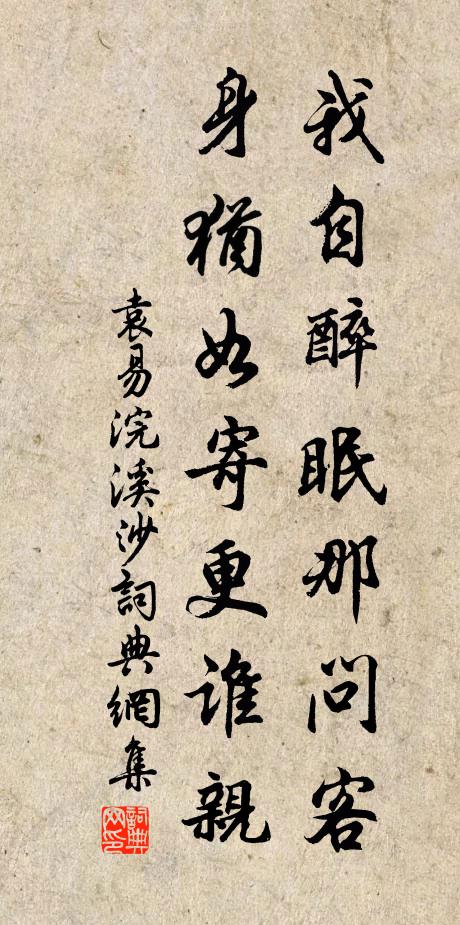 我自醉眠那問客
身猶如寄更誰親
袁易浣溪沙詞典網集
詞典網印